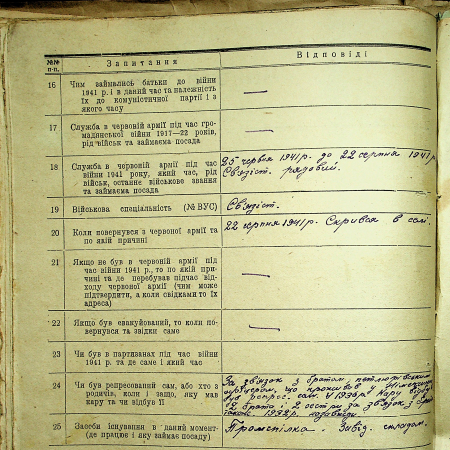 №№ п-п. Запитання Відповіді
16 Чим займались батьки до війни
1941 р. і в даний час та належність
їх до комуністичної партії і з
якого часу —
17 Служба в червоній армії під час гро-
мадянської війни 1917—22 років,
рід військ та займаєма посада —
18 Служба в червоній армії під час
війни 1941 року, який час, рід
військ, останнє військове звання
та займаєма посада
25 червня 1941 р. до 22 серпня 1941 р
Связіст. рядовий.
19 Військова спеціальність (№ ВУС) Связіст.
20 Коли повернувся з червоної армії та
по якій причині
22 серпня 1941 р. Скрився в сам.
21 Якщо не був в червоній армії під
час війни 1941 р., то по якій при-
чині та де перебував підчас від-
ходу червоної армії (чим може
підтвердити, а коли свідками то їх
адреса) —
22 Якщо був евакуйований, то коли по-
вернувся та звідки саме —
23 Чи був в партизанах під час війни
1941 р. та де саме і який час
24 Чи був репресований сам, або хто з
родичів, коли і защо, яку мав
кару та чи відбув її
За звязок з братом, петлюрівським
офіцером, що проживав у Німеччині
був репрес. сам. У 1938 р. кару
2 брата і 2 сестри за звязок з
також 1938 р.
25 Засоби існування в даний момент
(де працює і яку займає посаду)
Промспілка. Завід. складом.